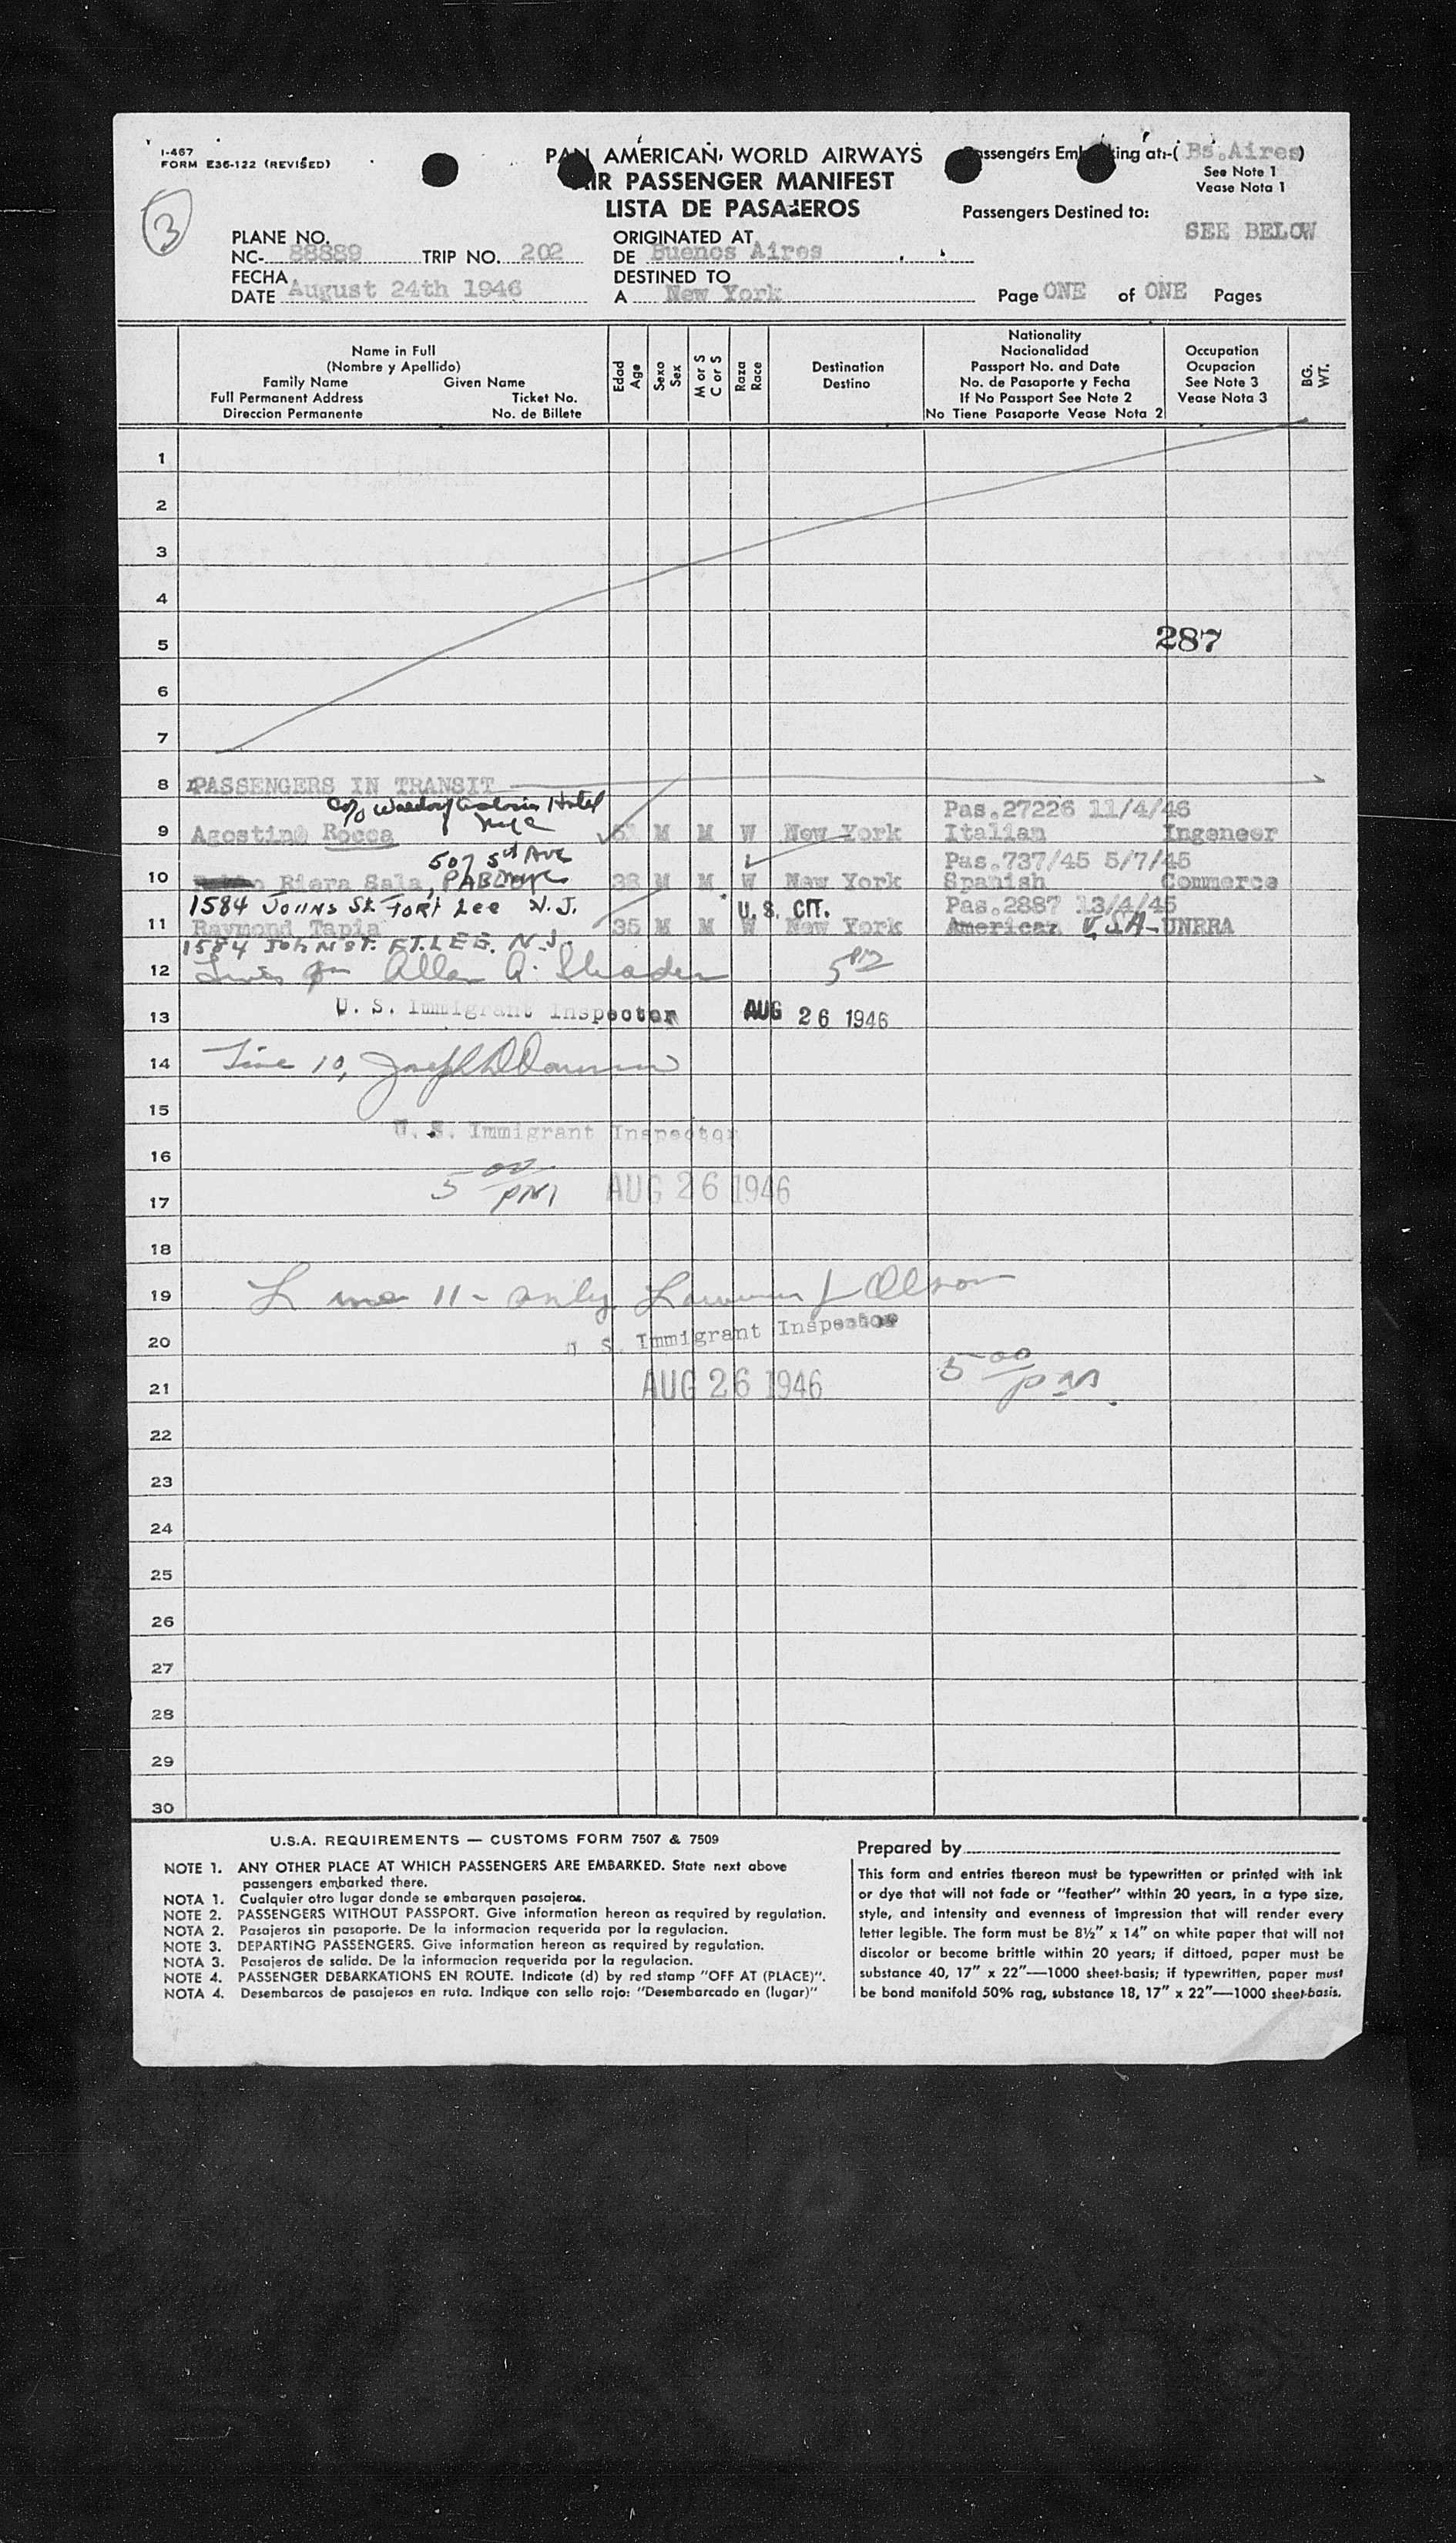 I-467
FORM E36-122 (REVISED)
3
PAN AMERICAN WORLD AIRWAYS
AIR PASSENGER MANIFEST
LISTA DE PASAJEROS
Passengers Embarking at:-( Bs.Aires)
See Note 1
Vease Nota 1
Passengers Destined to:
SEE BELOW
PLANE NO.
NC- 88889 TRIP NO. 202
FECHA
DATE August 24th 1946
ORIGINATED AT
DE Buenos Aires
DESTINED TO
A New York
Page ONE of ONE Pages
Name in Full
(Nombre y Apellido)
Family Name Given Name
Full Permanent Address Ticket No.
Direccion Permanente No. de Billete
Edad
Age
Sexo
Sex
M or S
C or S
Raza
Race
Destination
Destino
Nationality
Nacionalidad
Passport No. and Date
No. de Pasaporte y Fecha
If No Passport See Note 2
No Tiene Pasaporte Vease Nota 2
Occupation
Ocupacion
See Note 3
Vease Nota 3
BG.
WT.
1
2
3
4
5 287
6
7
8 PASSENGERS IN TRANSIT
c/o Waldorf Astoria Hotel
NYC
Pas.27226 11/4/46
9 Agostino Rocca M M W New York Italian Ingeneer
507 5th Ave
Pas.737/45 5/7/45
10 Riera Sala, PABLO NYC 38 M M W New York Spanish Commerce
1584 JOHNS St FORT Lee N.J. U.S. CIT. Pas.2887 13/4/45
11 Raymond Tapia 35 M M W New York American U.S.A- UNRRA
1584 JOHN ST. FT. LEE. N.J.
12 Allan A. 5 PM
13 U. S. Immigrant Inspector AUG 26 1946
14 Line 10, Joseph
15
U. S. Immigrant Inspector
16
17 5 00 PM AUG 26 1946
18
19 Line 11 - only, L Olson
20 U. S. Immigrant Inspector
21 AUG 26 1946 5 00 PM
22
23
24
25
26
27
28
29
30
U.S.A. REQUIREMENTS — CUSTOMS FORM 7507 & 7509
NOTE 1. ANY OTHER PLACE AT WHICH PASSENGERS ARE EMBARKED. State next above
passengers embarked there.
NOTA 1. Cualquier otro lugar donde se embarquen pasajeros.
NOTE 2. PASSENGERS WITHOUT PASSPORT. Give information hereon as required by regulation.
NOTA 2. Pasajeros sin pasaporte. De la informacion requerida por la regulacion.
NOTE 3. DEPARTING PASSENGERS. Give information hereon as required by regulation.
NOTA 3. Pasajeros de salida. De la informacion requerida por la regulacion.
NOTE 4. PASSENGER DEBARKATIONS EN ROUTE. Indicate (d) by red stamp "OFF AT (PLACE)".
NOTA 4. Desembarcos de pasajesos en ruta. Indique con sello rojo: "Desembarcado en (lugar)"
Prepared by
This form and entries thereon must be typewritten or printed with ink
or dye that will not fade or "feather" within 20 years, in a type size,
style, and intensity and evenness of impression that will render every
letter legible. The form must be 8½" x 14" on white paper that will not
discolor or become brittle within 20 years; if dittoed, paper must be
substance 40, 17" x 22"—1000 sheet-basis; if typewritten, paper must
be bond manifold 50% rag, substance 18, 17" x 22"—1000 sheet-basis.